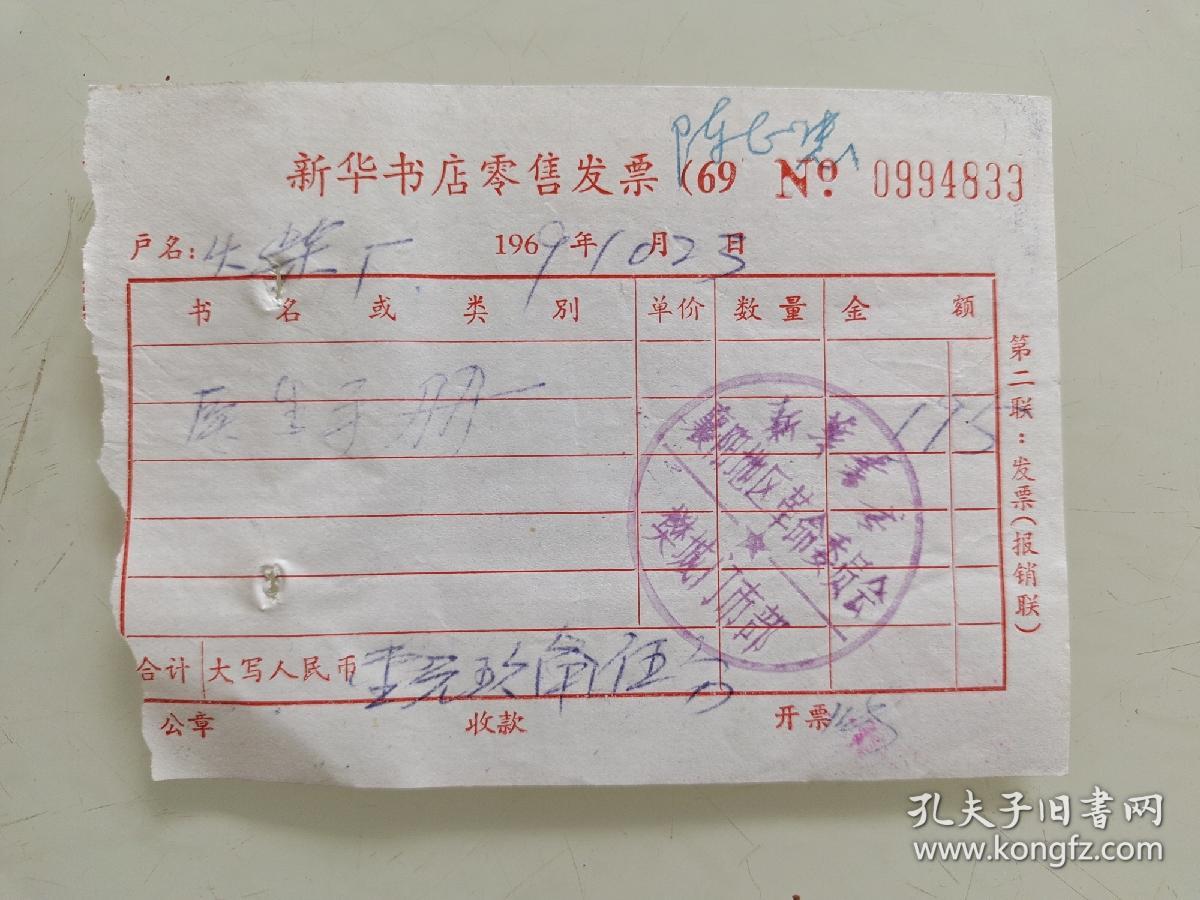 新华书店零售发票 (69 № 0994833
户名: 火柴厂 1969年10月23日
书名或类别 单价 数量 金额
医生手册一 195
新华书店
襄阳地区革命委员会
樊城门市部
合计 大写人民币 壹元玖角伍分
公章 收款 开票
第二联:发票(报销联)
孔夫子旧书网
www.kongfz.com